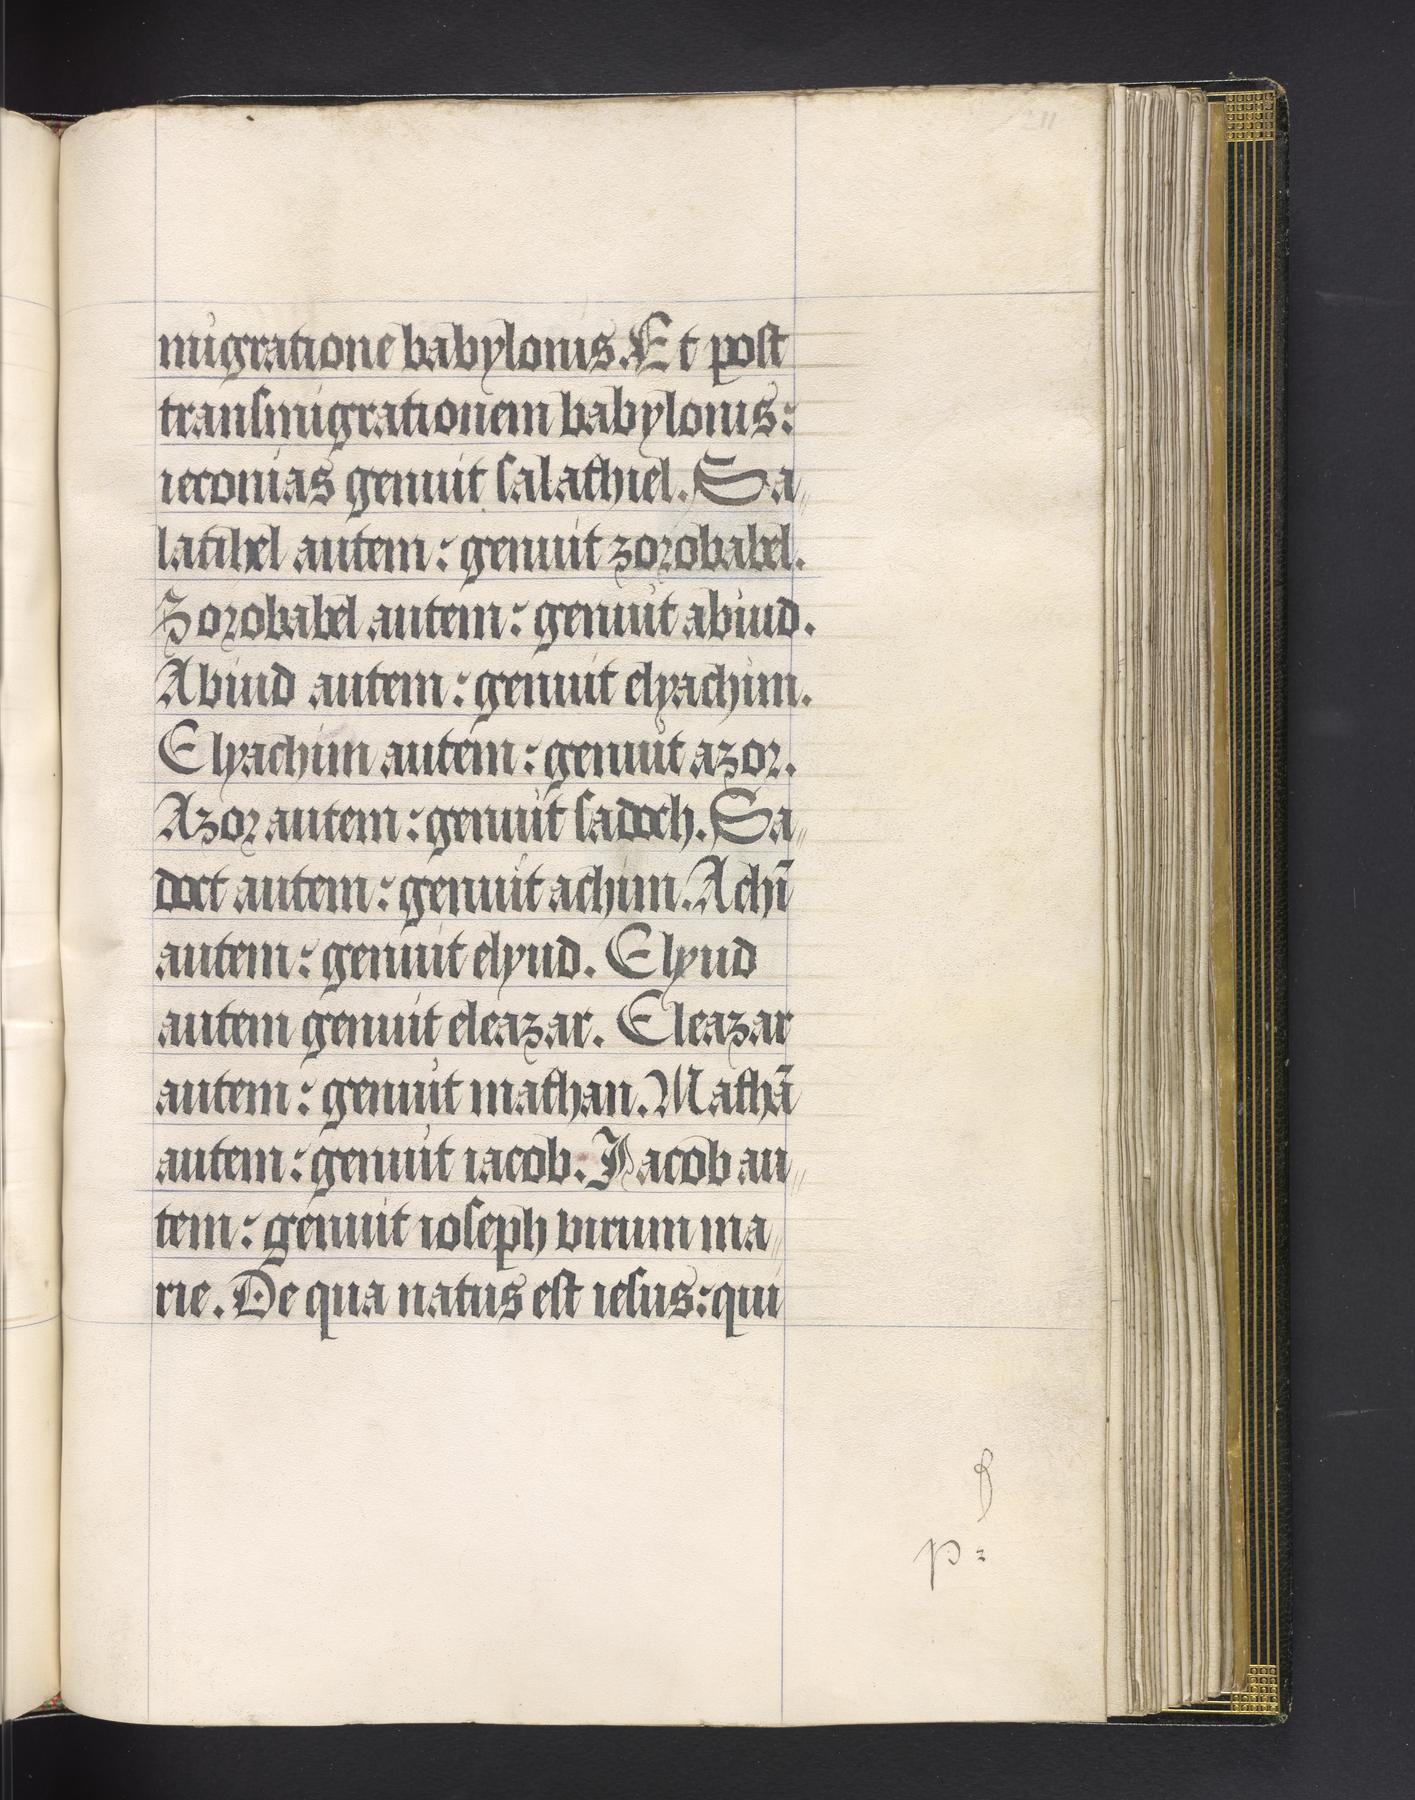 211
migratione babylonis. Et post
transmigrationem babylonis:
ieconias genuit salathiel. Sa
latihel autem: genuit zorobabel.
Zorobabel autem: genuit abiud.
Abiud autem: genuit elyachim.
Elyachim autem: genuit azor.
Azor autem: genuit sadoch. Sa
doct autem: genuit achim. Achī
autem: genuit elyud. Elyud
autem genuit eleazar. Eleazar
autem: genuit mathan. Mathā
autem: genuit iacob. Jacob au
tem: genuit ioseph virum ma
rie. De qua natus est iesus: qui